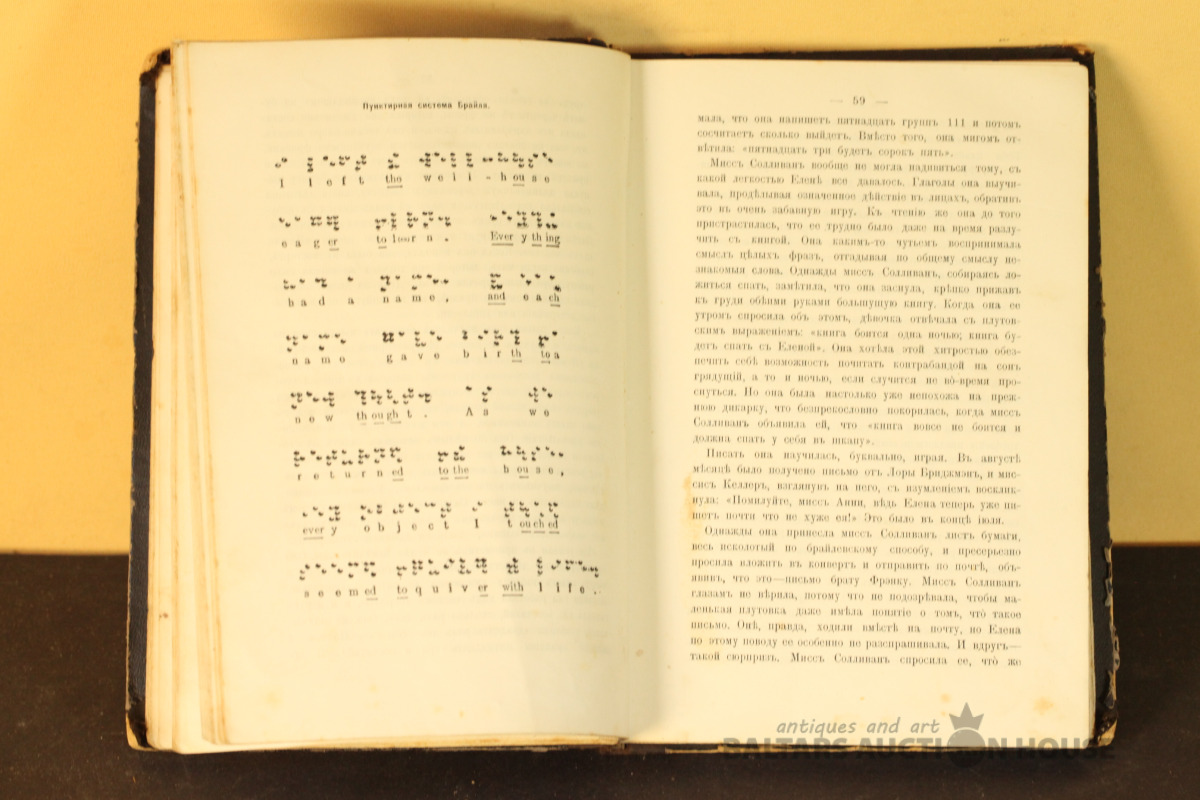 Пунктирная система Брайля.
I left the well-house
eager to learn. Everything
had a name, and each
name gave birth to a
new thought. As we
returned to the house,
every object I touched
seemed to quiver with life.
— 59 —
мала, что она напишетъ пятнадцать группъ 111 и потомъ
сосчитаетъ сколько выйдетъ. Вмѣсто того, она мигомъ от-
вѣтила: «пятнадцать три будетъ сорокъ пять».
Миссъ Солливанъ вообще не могла надивиться тому, съ
какой легкостью Еленѣ все давалось. Глаголы она выучи-
вала, продѣлывая означенное дѣйствіе въ лицахъ, обративъ
это въ очень забавную игру. Къ чтенію же она до того
пристрастилась, что ее трудно было даже на время разлу-
чить съ книгой. Она какимъ-то чутьемъ воспринимала
смыслъ цѣлыхъ фразъ, отгадывая по общему смыслу не-
знакомыя слова. Однажды миссъ Солливанъ, собираясь ло-
житься спать, замѣтила, что она заснула, крѣпко прижавъ
къ груди обѣими руками большущую книгу. Когда она ее
утромъ спросила объ этомъ, дѣвочка отвѣчала съ плутов-
скимъ выраженіемъ: «книга боится одна ночью; книга бу-
детъ спать съ Еленой». Она хотѣла этой хитростью обез-
печить себѣ возможность почитать контрабандой на сонъ
грядущій, а то и ночью, если случится не во́-время про-
снуться. Но она была настолько уже непохожа на преж-
нюю дикарку, что безпрекословно покорилась, когда миссъ
Солливанъ объявила ей, что «книга вовсе не боится и
должна спать у себя въ шкапу».
Писать она научилась, буквально, играя. Въ августѣ
мѣсяцѣ было получено письмо отъ Лоры Бриджмэнъ, и мис-
сисъ Келлеръ, взглянувъ на него, съ изумленіемъ восклик-
нула: «Помилуйте, миссъ Анни, вѣдь Елена теперь уже пи-
шетъ почти что не хуже ея!» Это было въ концѣ іюля.
Однажды она принесла миссъ Солливанъ листъ бумаги,
весь исколотый по брайлевскому способу, и пресерьезно
просила вложить въ конвертъ и отправить по почтѣ, объ-
явивъ, что это—письмо брату Фрэнку. Миссъ Солливанъ
глазамъ не вѣрила, потому что не подозрѣвала, чтобы ма-
ленькая плутовка даже имѣла понятіе о томъ, что́ такое
письмо. Онѣ, правда, ходили вмѣстѣ на почту, но Елена
по этому поводу ее особенно не разспрашивала. И вдругъ—
такой сюрпризъ. Миссъ Солливанъ спросила ее, что́ же
antiques and art
BALTARS AUCTION HOUSE